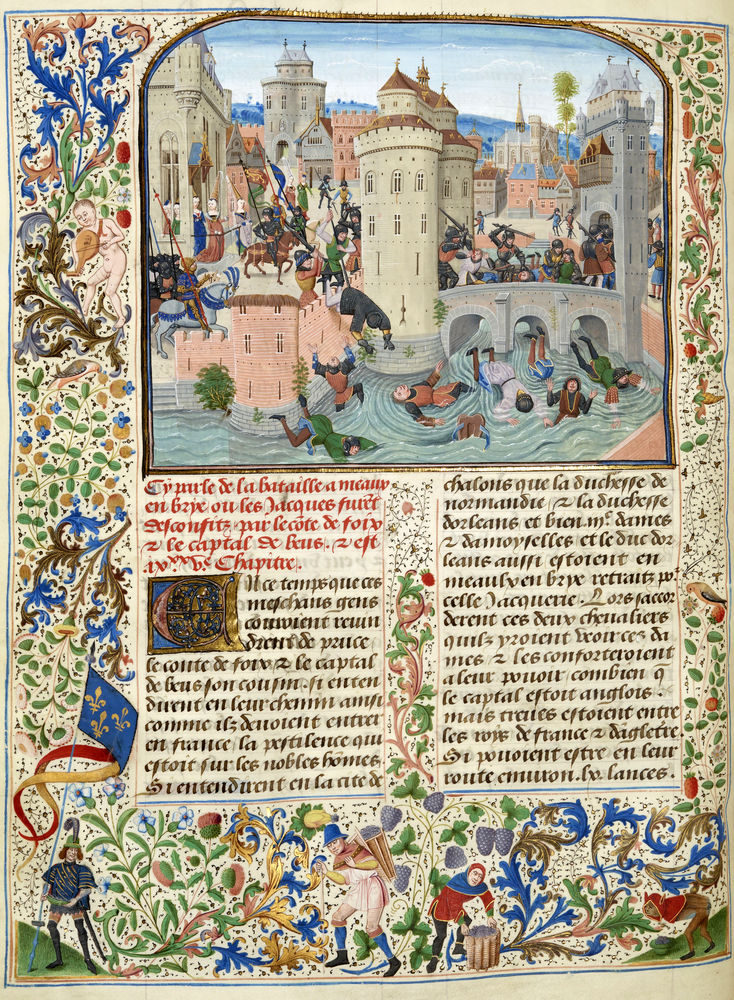 Cy parle de la bataille a meaux
en brye ou les Jacques furẽt
desconfitz par le cõte de foix
& le captal de beus. & est
Chapitre.
En ce temps que ces
meschans gens
couroient revin
drent de pruce
le conte de foix & le captal
de beus son cousin. si enten
dirent en leur chemin ainsi
comme ilz devoient entrer
en france la pestilence qui
estoit sur les nobles hõmes.
Si entendirent en la cite de
chalons que la duchesse de
normandie & la duchesse
dorleans et bien dames
& damoyselles et le duc dor
leans aussi estoient en
meaulx en brye retraitz
celle Jacquerie. Lors saccor
derent ces deux chevaliers
quilz yroient veoir ces da
mes & les conforteroient
a leur pouoir combien q̃
le captal estoit anglois.
mais treues estoient entre
les roys de france & dãgletre.
Si pouoient estre en leur
route environ .lx. lances.